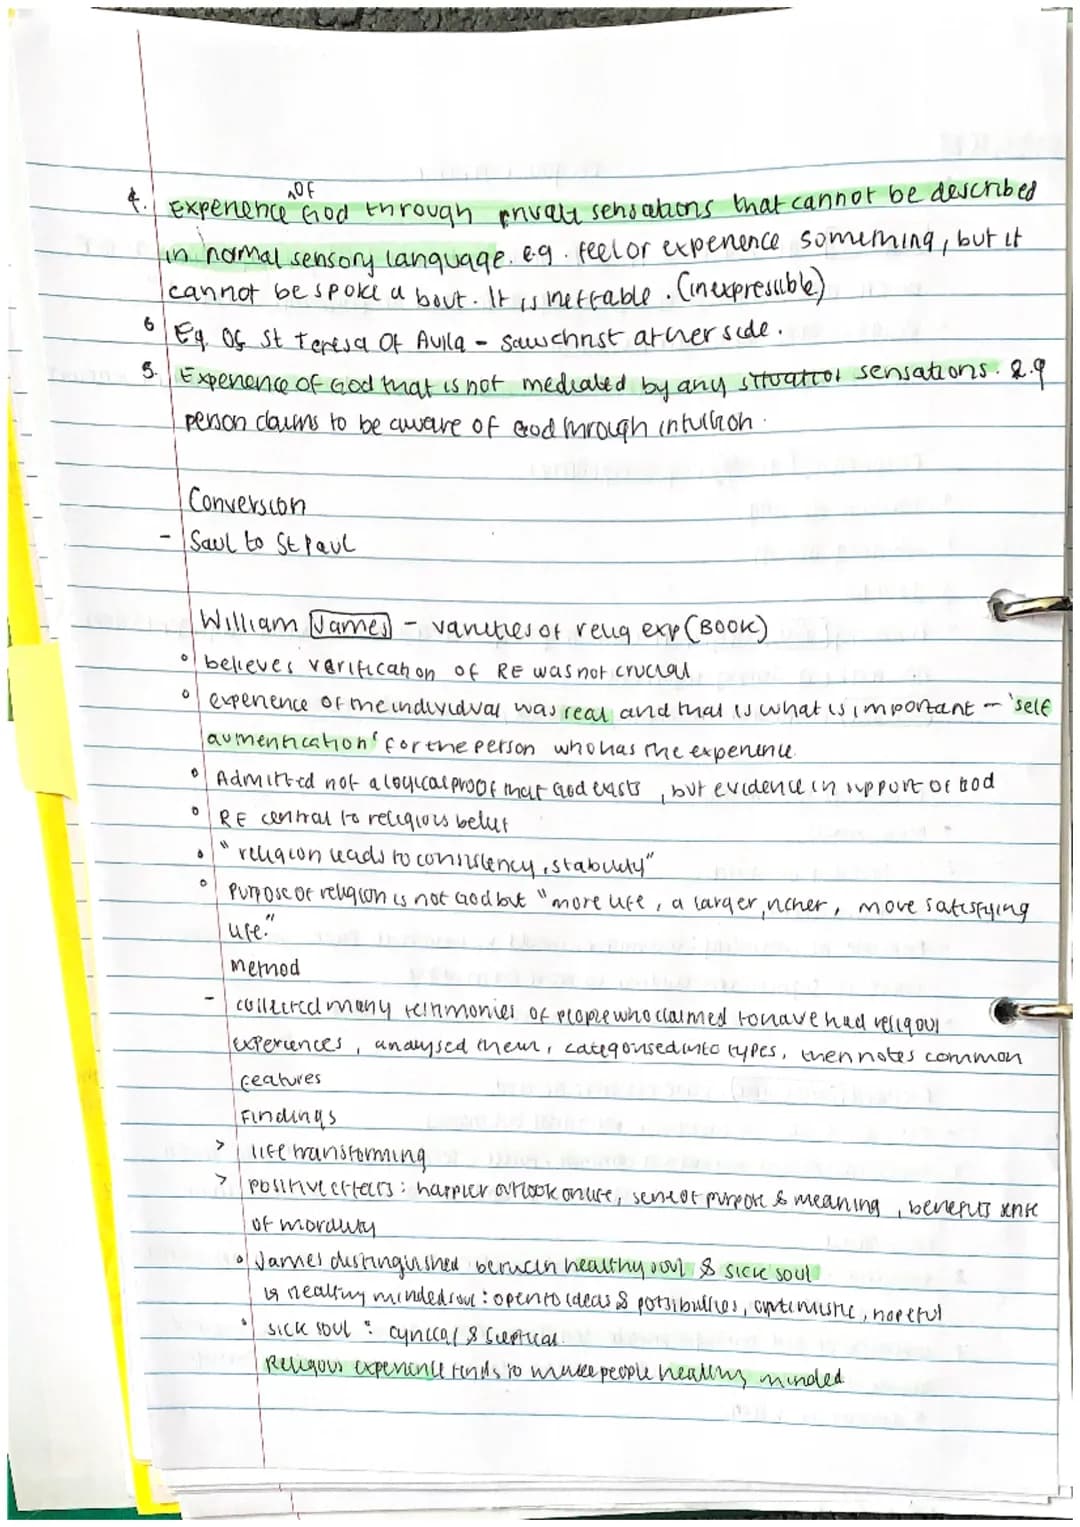 4. Experience ^OF God through private sensations that cannot be described
in normal sensory language. e.g. feel or experience something, but it
cannot be spoke about. It is ineffable. (inexpressible)
6 Eg. Of St Teresa Of Avila - saw christ at her side.
5. Experience of God that is not mediated by any situation sensations. e.g
person claims to be aware of God through intuition.
Conversion
- Saul to St Paul
William James - varieties of relig exp (BOOK)
° believes verification of RE was not crucial
° experience of the individual was real and that is what is important - 'self
authentication' for the person who has the experience.
° Admitted not a logical proof that God exists, but evidence in support of God
° RE central to religious belief
• "religion leads to consistency, stability"
° Purpose of religion is not God but "more life, a larger, richer, more satisfying
life."
Method
- collected many testimonies of people who claimed to have had religous
experiences, analysed them, categorised into types, then notes common
features
Findings
> life transforming
> positive effects: happier outlook on life, sense of purpose & meaning, benefits sense
of morality
• James distinguished between healthy soul & sick soul
↳ healthy minded soul: open to ideas & possibilities, optimistic, hopeful
• sick soul: cynical & sceptical
Religous experience tends to make people healthy minded